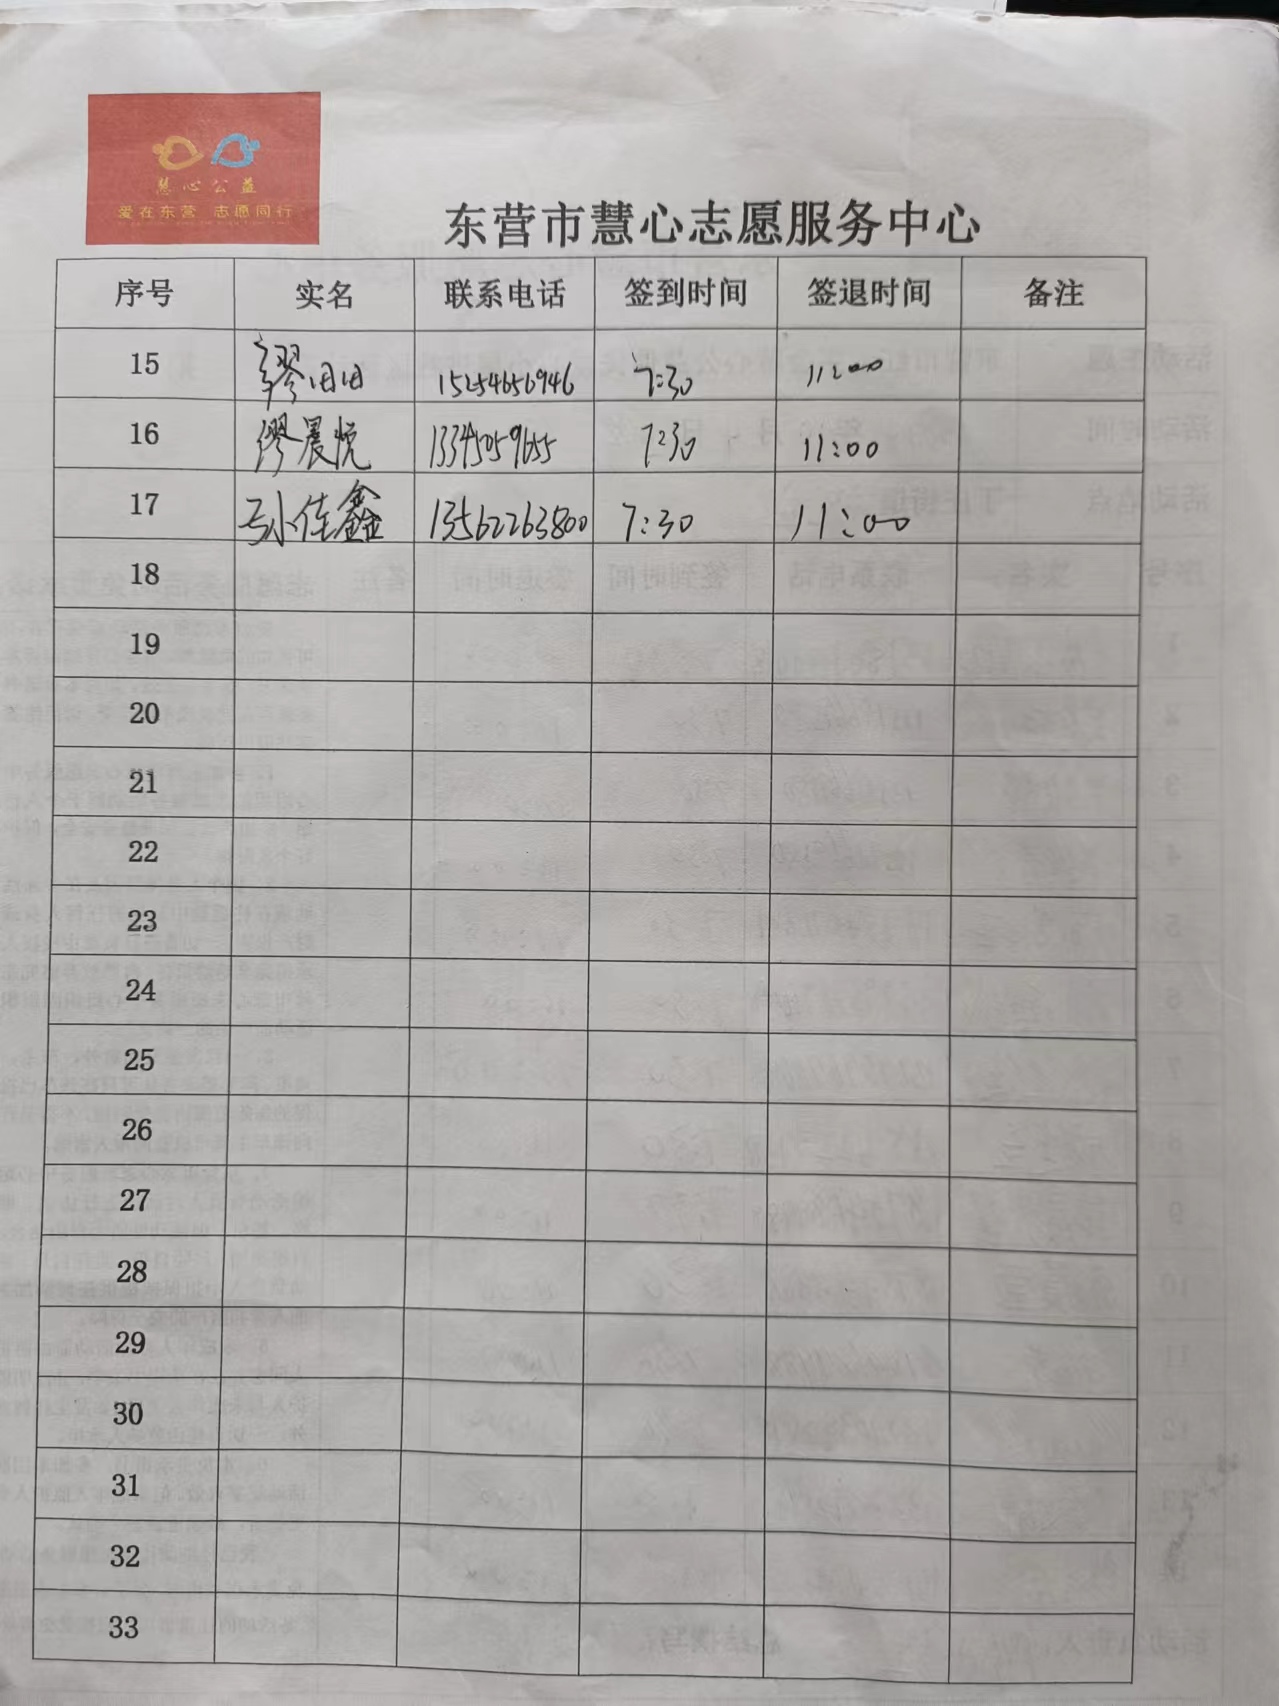 慧心公益
爱在东营 志愿同行
东营市慧心志愿服务中心
序号 实名 联系电话 签到时间 签退时间 备注
15 缪田田 15254656946 7:30 11:00
16 缪晨悦 13345059655 7:30 11:00
17 孙佳鑫 13562263800 7:30 11:00
18
19
20
21
22
23
24
25
26
27
28
29
30
31
32
33